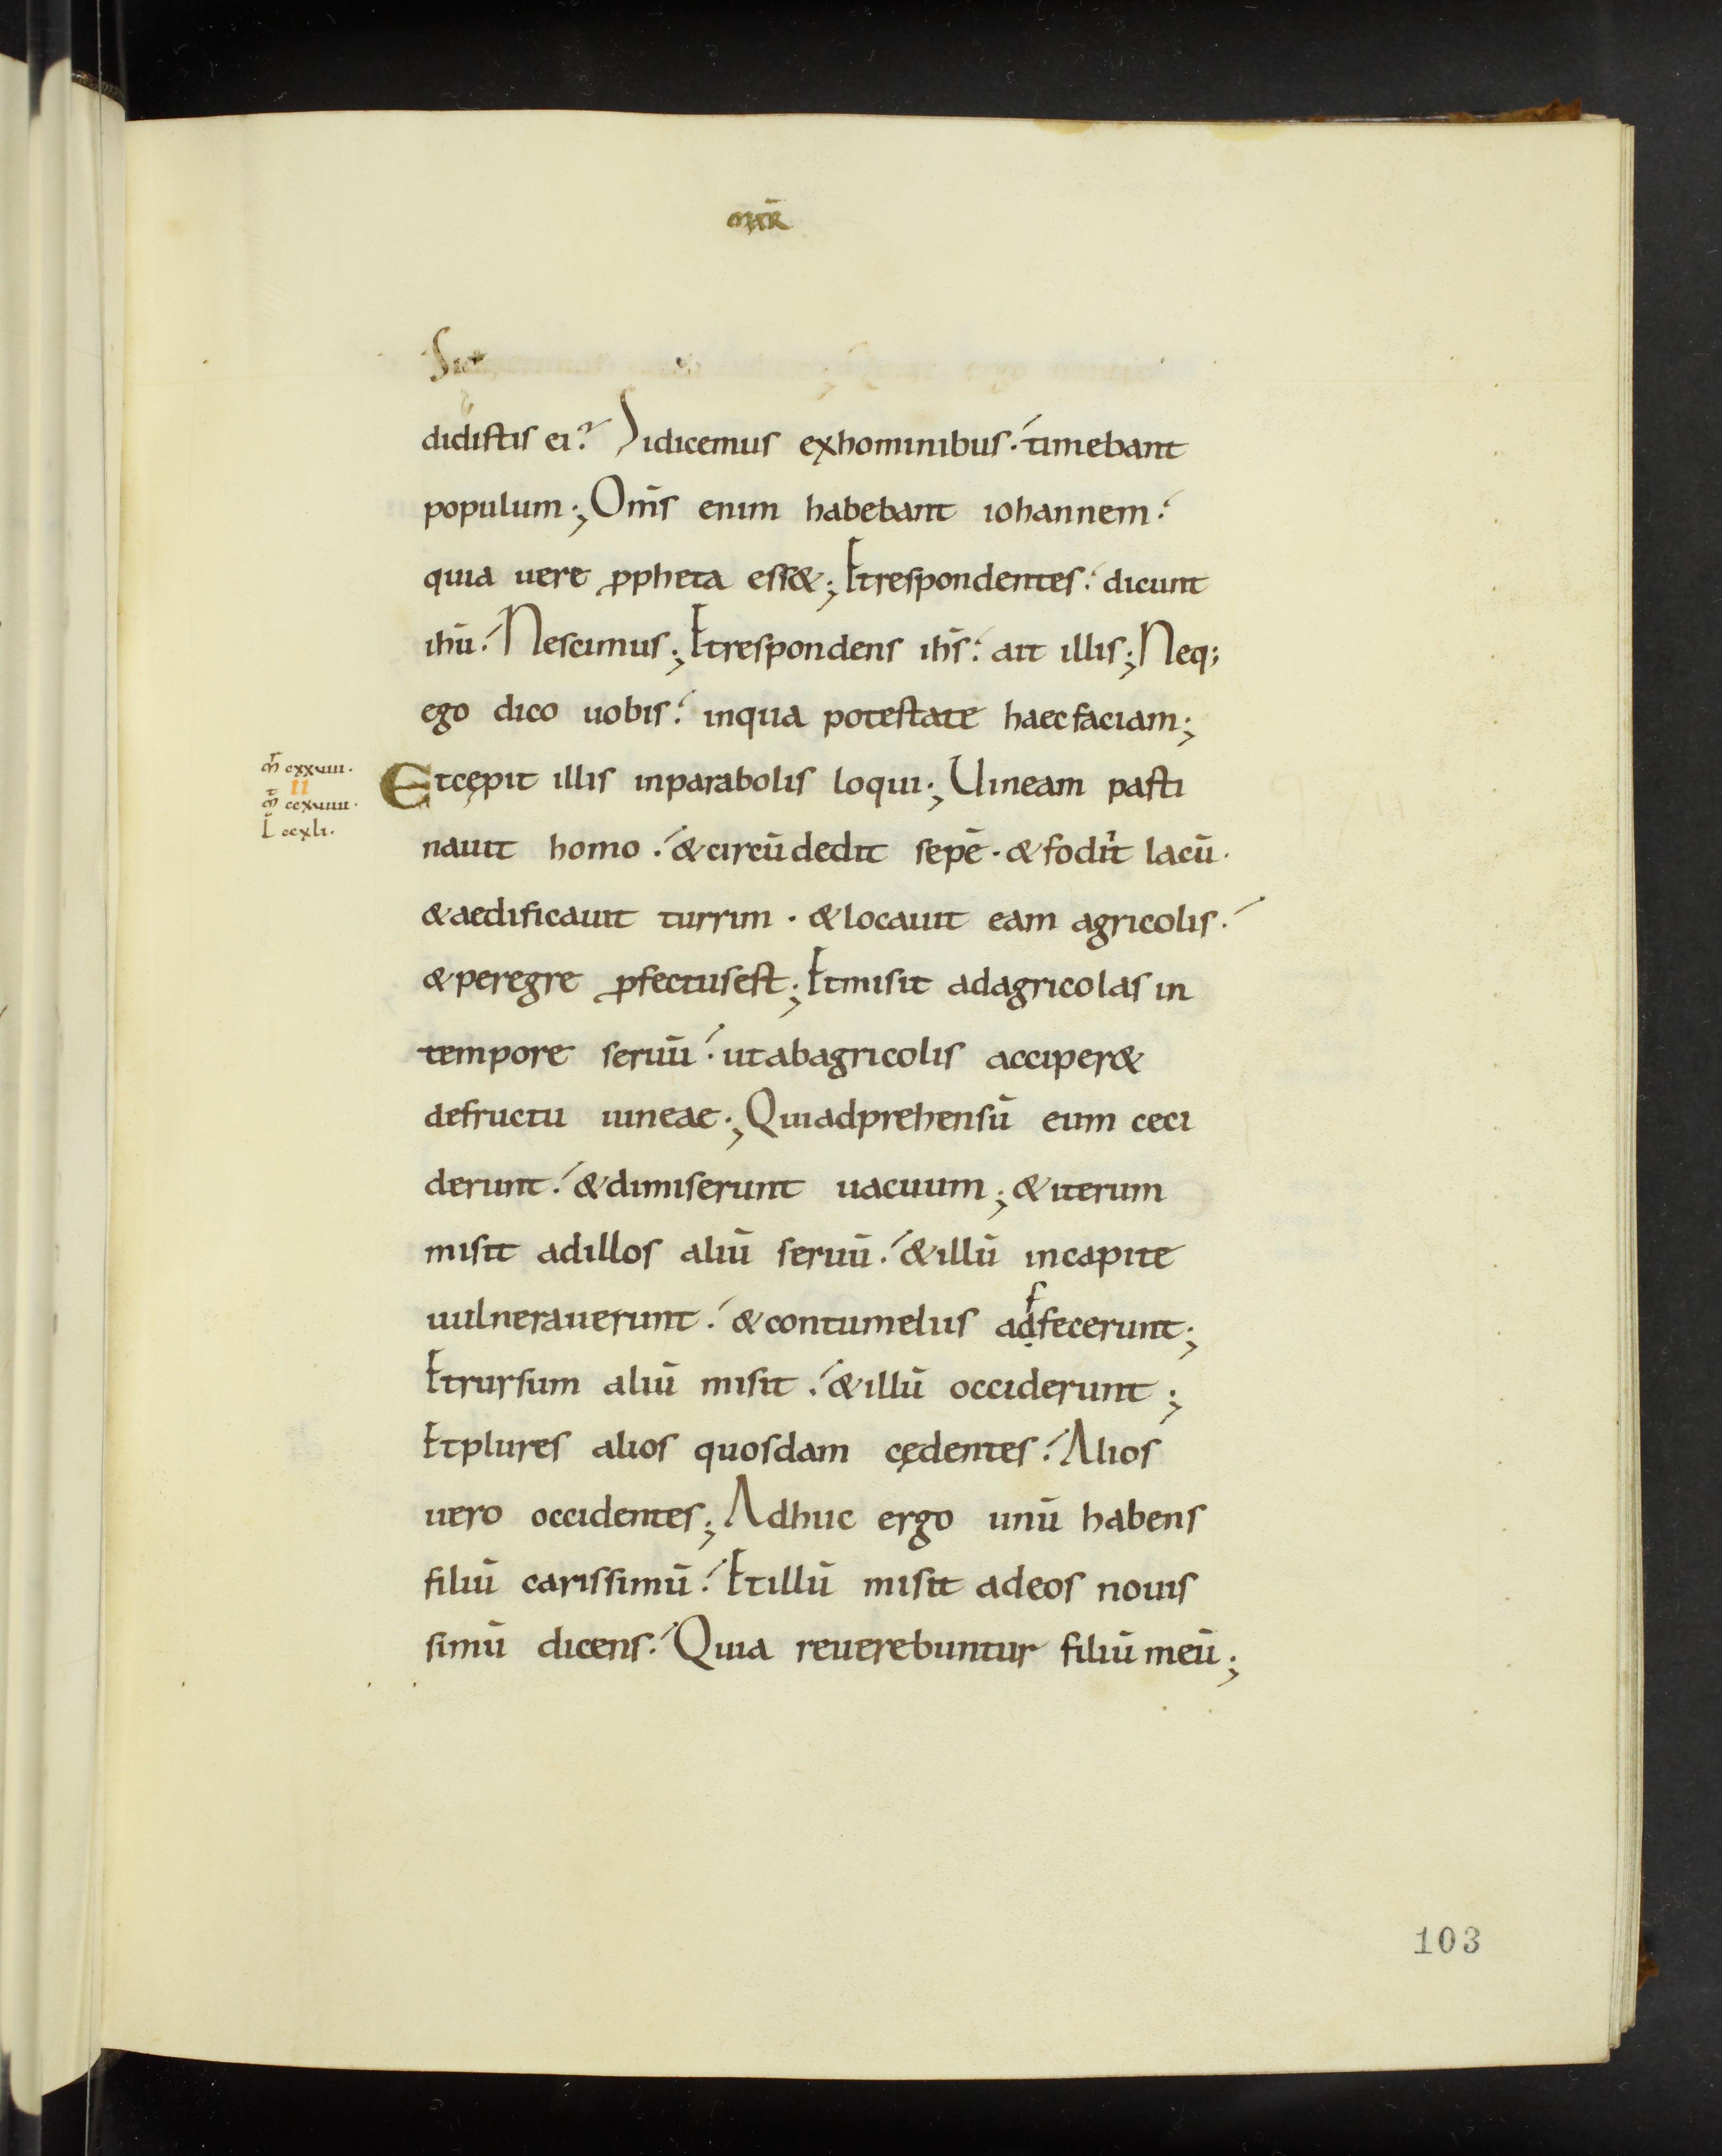 MR̄
didistis ei? Sidicemus exhominibus. timebant
populum; Om̄s enim habebant iohannem.
quia uere ꝓpheta ess&; Etrespondentes. dicunt
ihū. Nescimus; Etrespondens ihs̄. ait illis; Neq;
ego dico uobis. inqua potestate haecfaciam;
m̄r cxxuiii.
II
m̄t ccxuiiii.
L̄ ccxli.
Etcępit illis inparabolis loqui; Uineam pasti
nauit homo. &circūdedit sepē. &fodiit lacū.
&aedificauit turrim. &locauit eam agricolis.
&peregre ꝓfectusest; Etmisit adagricolas in
tempore seruū. utabagricolis acciper&
defructu uineae; Quiadprehensū eum ceci
derunt. &dimiserunt uacuum; &iterum
misit adillos aliū seruū. &illū incapite
uulnerauerunt. &contumeliis adfecerunt;
f
Etrursum aliū misit. &illū occiderunt;
Etplures alios quosdam cędentes. Alios
uero occidentes; Adhuc ergo unū habens
filiū carissimū. Etillū misit adeos nouis
simū dicens. Quia reuerebuntur filiū meū;
103